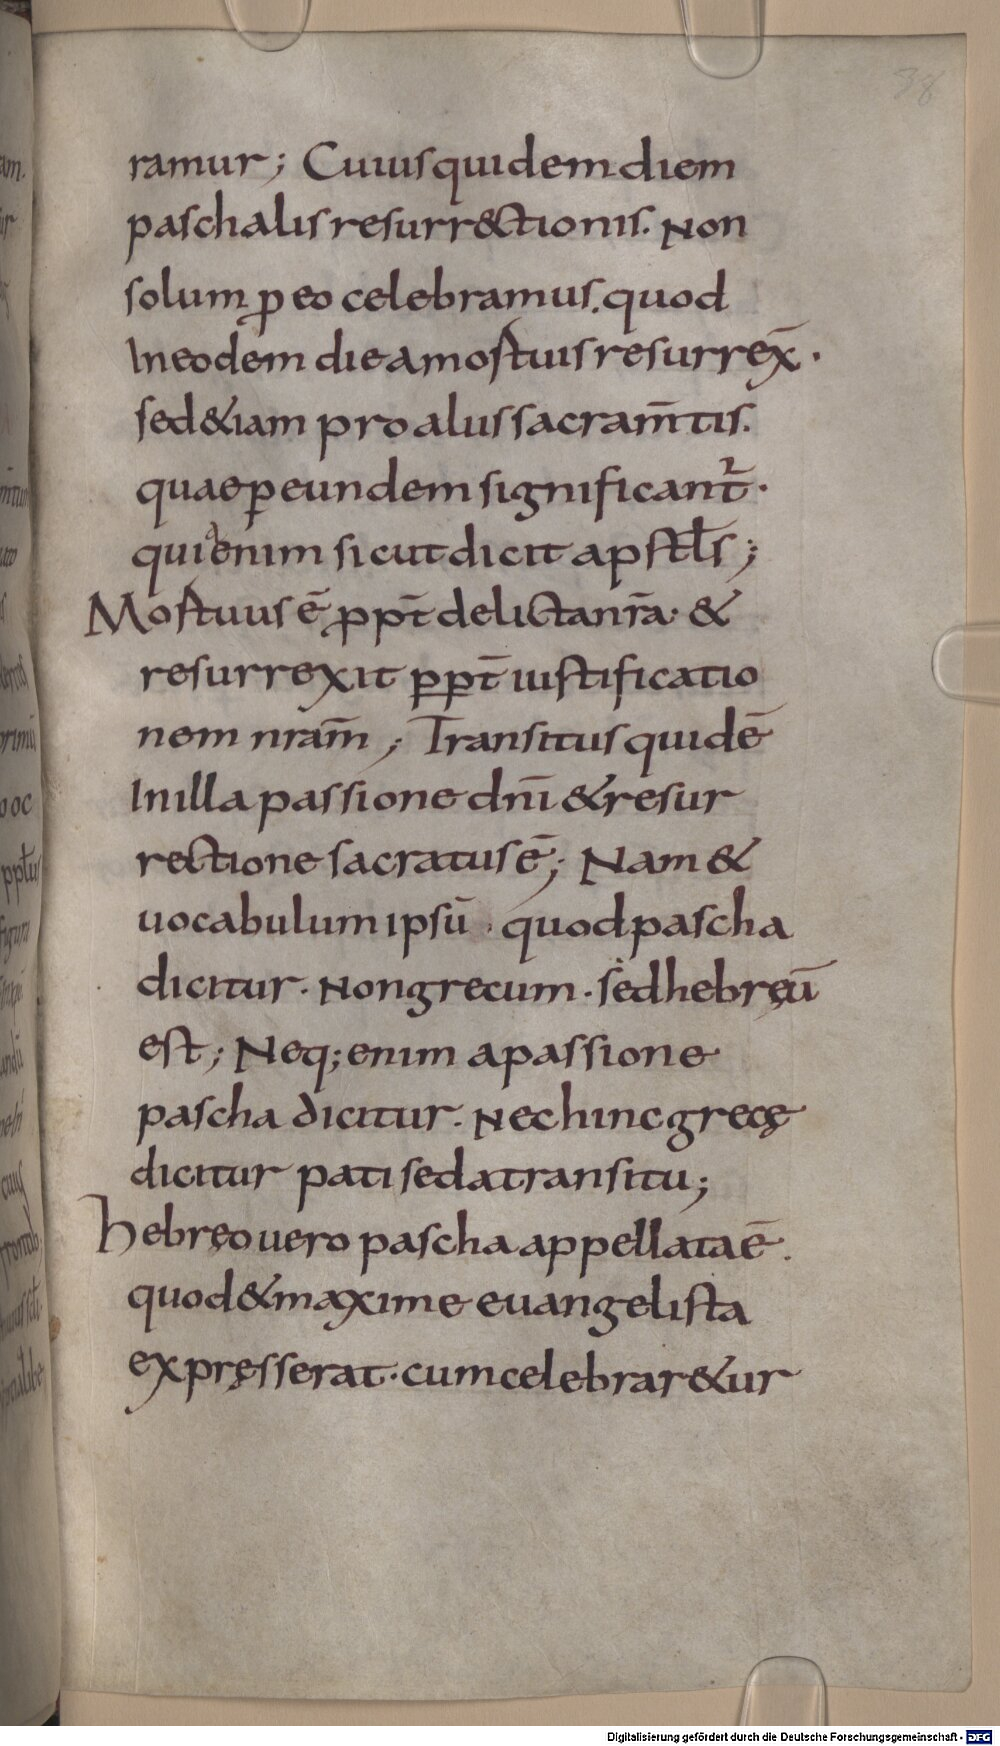 38
ramur; Cuius quidem diem
paschalis resurr&ctionis. Non
solum ꝓ eo celebramus. quod
In eodem die a mortuis resurrex̄.
sed &iam pro aliis sacram̄tis.
quae ꝑ eundem significant̄ᷣ.
quia enim sicut dicit apsto̅ls;
Mortuus ē ꝓpt̄ delicta nr̄a. &
resurrexit ꝓpt̄ iustificatio
nem nram̄; Transitus quidē
In illa passione dn̄i & resur
rectione sacratus ē; Nam &
uocabulum ipsū. quod pascha
dicitur. Non grecum. sed hebręū
est; Neq; enim a passione
pascha dicitur. Nec hinc grecę
dicitur pati sed a transitu;
hebręo uero pascha appellata ē.
quod & maxime euangelista
expręsserat. cum celebrar&ur
Digitalisierung gefördert durch die Deutsche Forschungsgemeinschaft - DFG